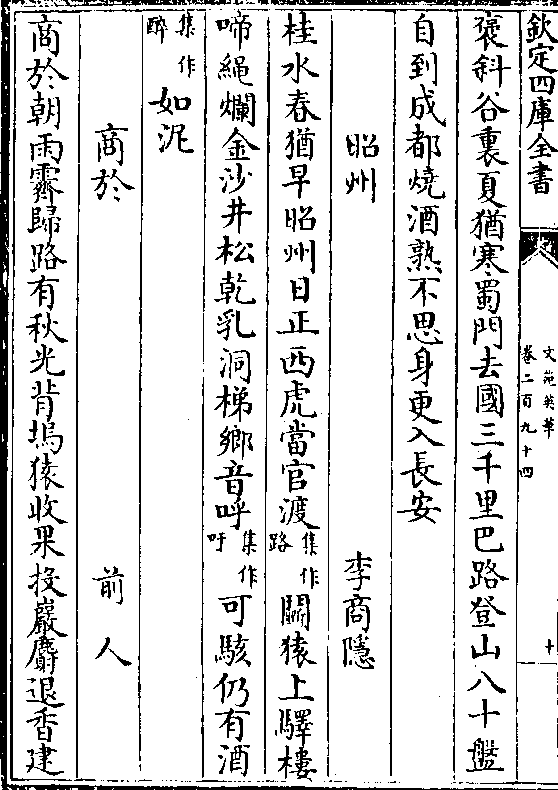 欽定四庫全書
文苑英華
卷二百九十四
十
褒斜谷裏夏猶寒蜀門去國三千里巴路登山八十盤
自到成都燒酒熟不思身更入長安
昭州 李商隱
桂水春猶早昭州日正西虎當官渡集作路鬭猿上驛樓
啼繩爛金沙井松乾乳洞梯鄉音呼集作吁可駭仍有酒
集作醉如泥
商於 前人
商於朝雨霽歸路有秋光背塢猿收果投巖麝退香建